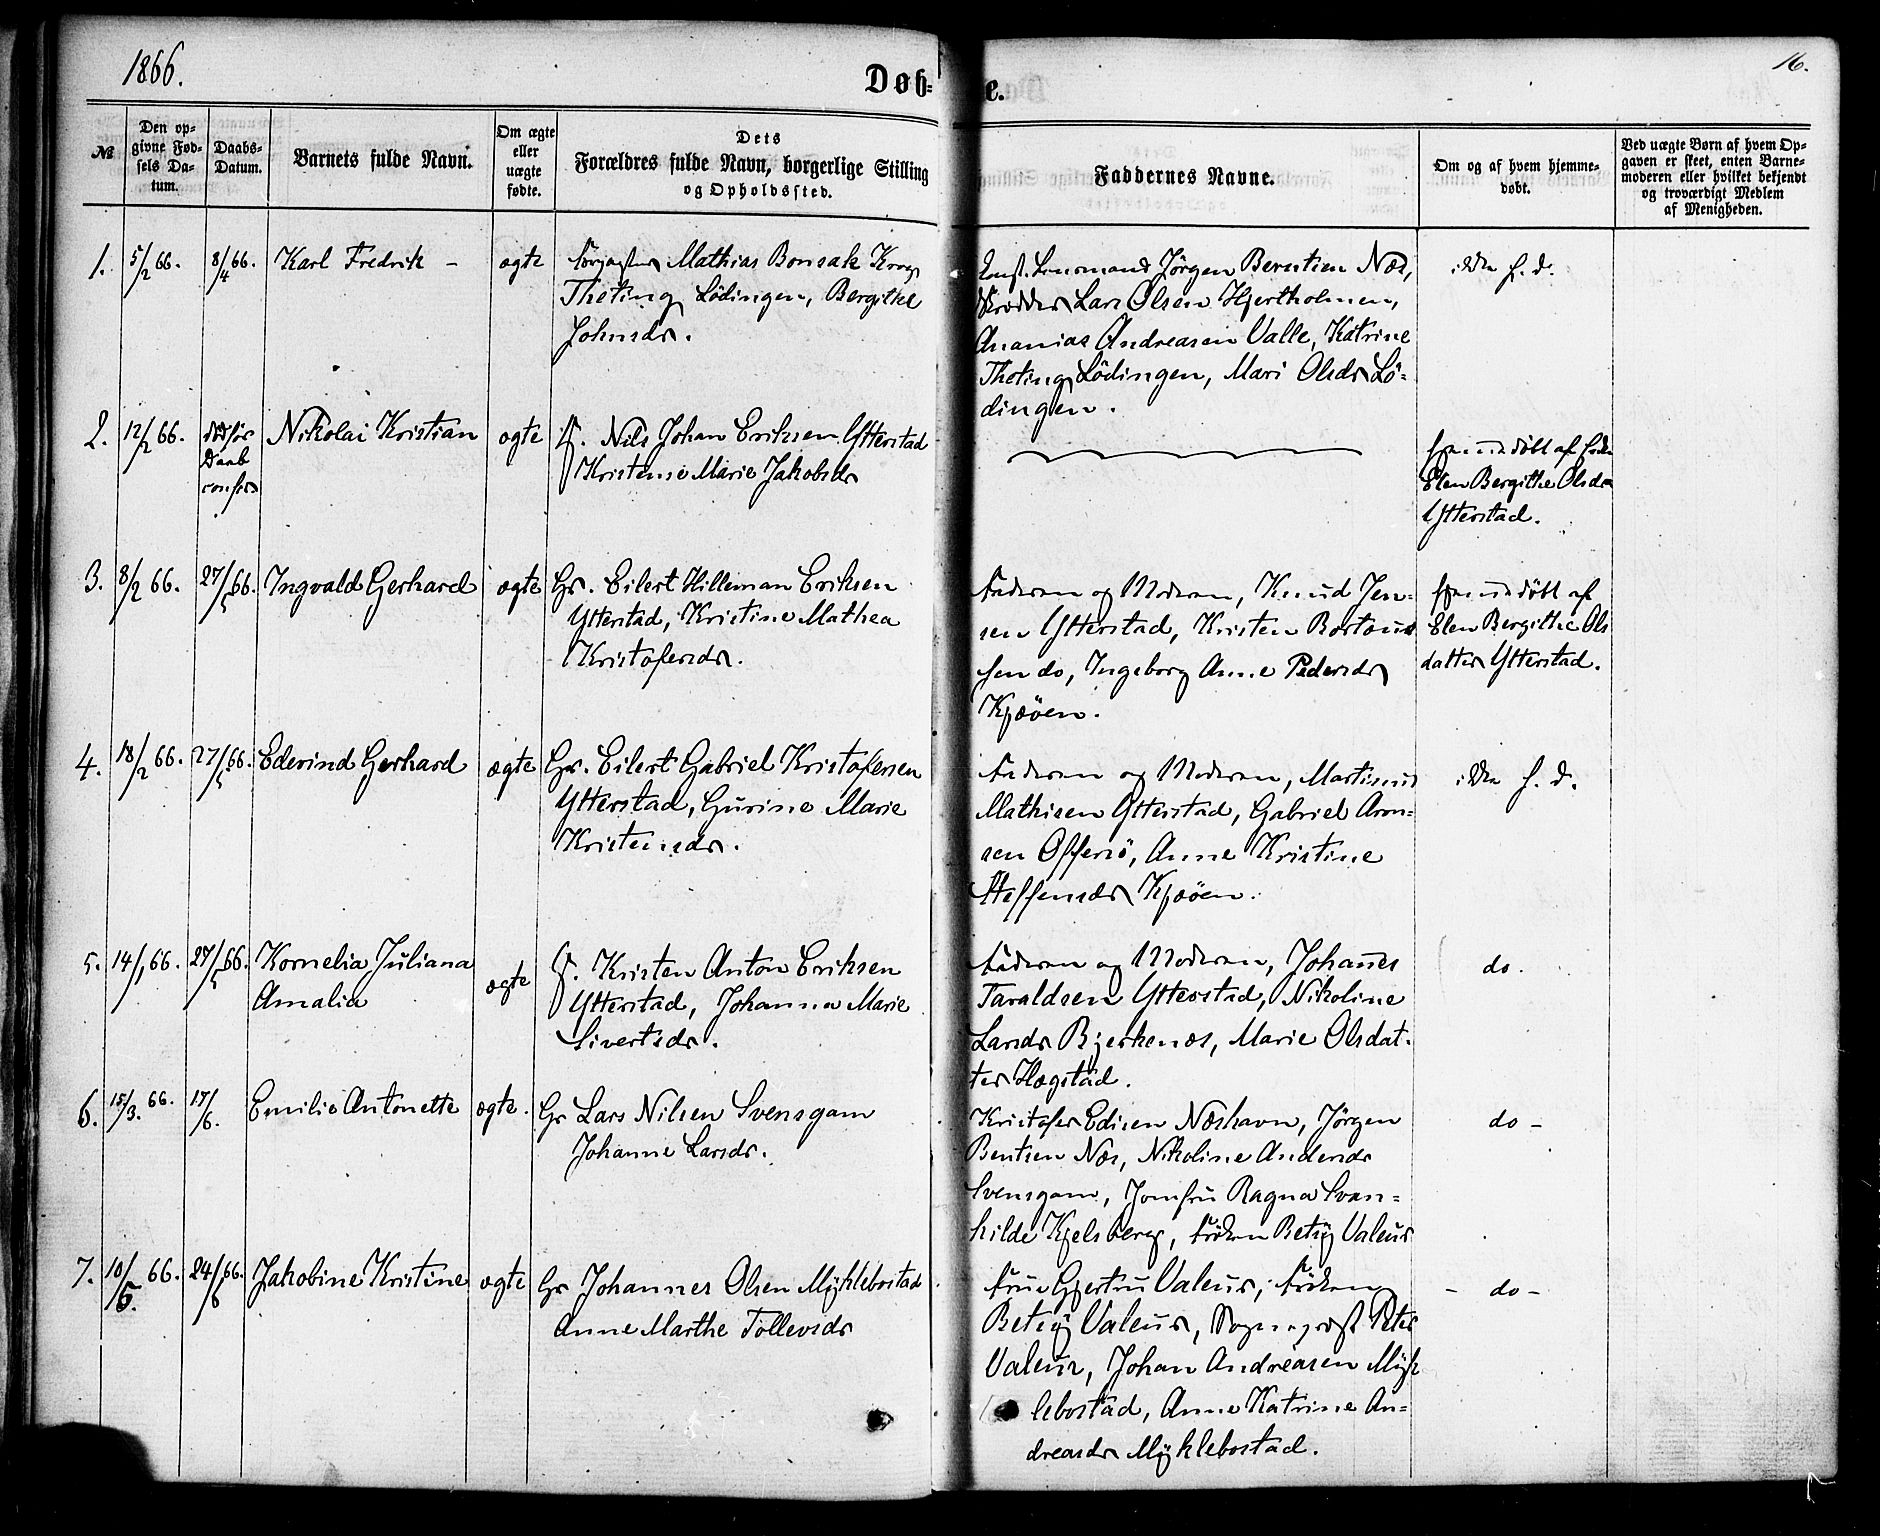 1866.
16.
Døb-
e.
№
Den op-
givne Fød-
sels Da-
tum.
Daabs-
Datum.
Barnets fulde Navn.
Om ægte
eller
uægte
fødte.
Dets
Forældres fulde Navn, borgerlige Stilling
og Opholdssted.
Faddernes Navne.
Om og af hvem hjemme-
døbt.
Ved uægte Børn af hvem Op-
gaven er skeet, enten Barne-
moderen eller hvilket bekjendt
og troværdigt Medlem
af Menigheden.
1. 5/2 66. 8/4 66. Karl Fredrik - ægte Mathias Bonsak Krog
Theting Lödingen, Bergithe
Johnsdr.
Konst. Lensmand Jörgen Berntsen Næs,
Skrædder Lars Olsen Hjertholmen,
Ananias Andreasen Valle, Katrine
Theting Lödingen, Mari Olsdr Lö-
dingen.
ikke h. d.
2. 12/2 66. død før
Daab
Nikolai Kristian ægte F. Nils Johan Eriksen Ytterstad
Kristense Marie Jakobsdr
Hjemmedöbt af
Elen Bergithe Olsdr
Ytterstad.
3. 8/2 66. 27/5 66. Ingvald Gerhard ægte Gr. Eilert Hilleman Eriksen
Ytterstad, Kristine Mathea
Kristofersdr.
Faderen og Moderen, Knud Jen-
sen Ytterstad, Kristen
sen do, Ingeborg Anne Pedersdr
Kjøöen.
Hjemmedöbt af
Elen Bergithe Ols
datter Ytterstad.
4. 18/2 66. 27/5 66. Edevind Gerhard ægte Gr. Eilert Gabriel Kristofersen
Ytterstad, Gurine Marie
Kristensdr.
Faderen og Moderen, Martinus
Mathisen Ytterstad, Gabriel Aron-
sen Offersö, Anne Kristine
Steffensdr Kjøöen.
ikke h. d.
5. 14/1 66. 27/5 66. Kornelia Juliana
Amalia
ægte
F. Kristen Anton Eriksen
Ytterstad, Johanna Marie
Sivertsdr.
Faderen og Moderen, Johanes
Taraldsen Ytterstad, Nikoline
Larsdr Bjerkenæs, Marie Olsdat-
ter Hægstad.
do.
6. 15/3. 66. 17/6. Emilie Antonette ægte. Gr Lars Nilsen Svensgam
Johanne Larsdr.
Kristofer Edisen Næshavn, Jörgen
Bentsen Næs, Nikoline Andersdr
Svensgam, Jomfru Ragna Svan-
hilde Kjelsberg, Fröken Betsy Valeur
do -
7. 10/5. 66. 24/6 66. Jakobine Kristine ægte Gr Johannes Olsen Myklebostad
Anne Marthe Tollevsdr
Frue Gjertru Valeur, Fröken
Betsy Valeur, Sogneprest Peter
Valeur, Johan Andreasen Myk
lebostad, Anne Katrine An-
dreasdr Myklebostad.
- do -